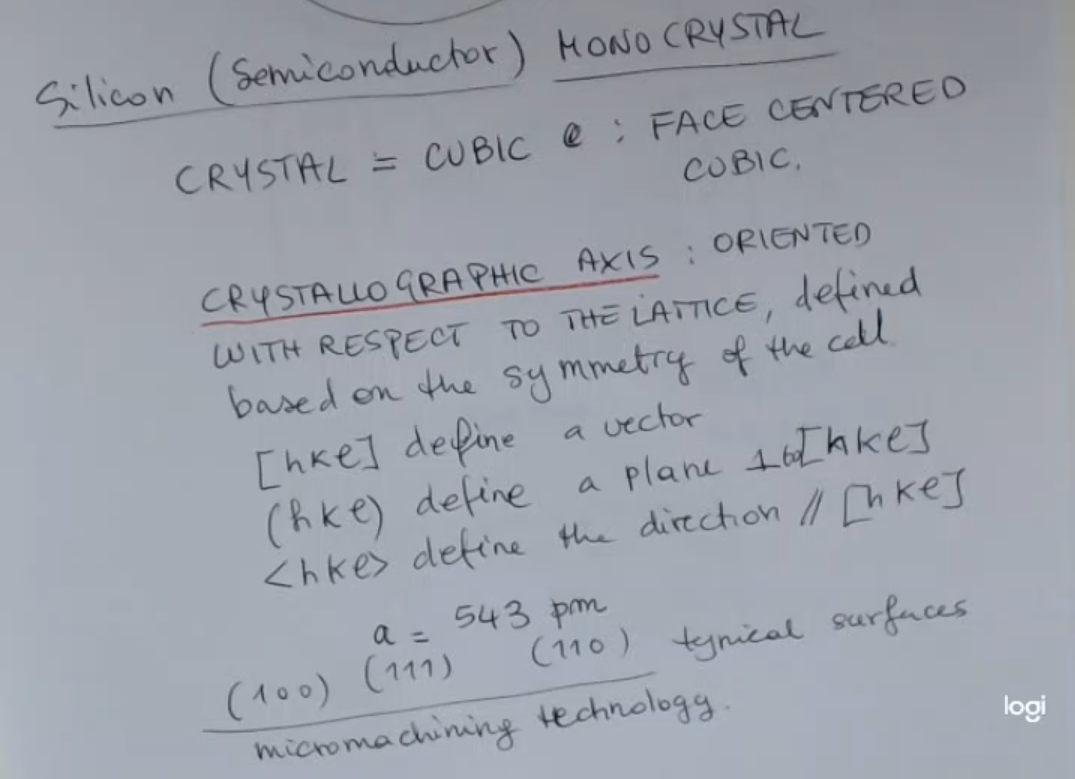 Silicon (Semiconductor) MONOCRYSTAL
CRYSTAL = CUBIC e : FACE CENTERED
CUBIC.
CRYSTALLOGRAPHIC AXIS : ORIENTED
WITH RESPECT TO THE LATTICE, defined
based on the symmetry of the cell
[hkl] define a vector
(hkl) define a plane ⊥ to [hkl]
<hkl> define the direction // [hkl]
a = 543 pm
(100) (111) (110) typical surfaces
micromachining technology.
logi